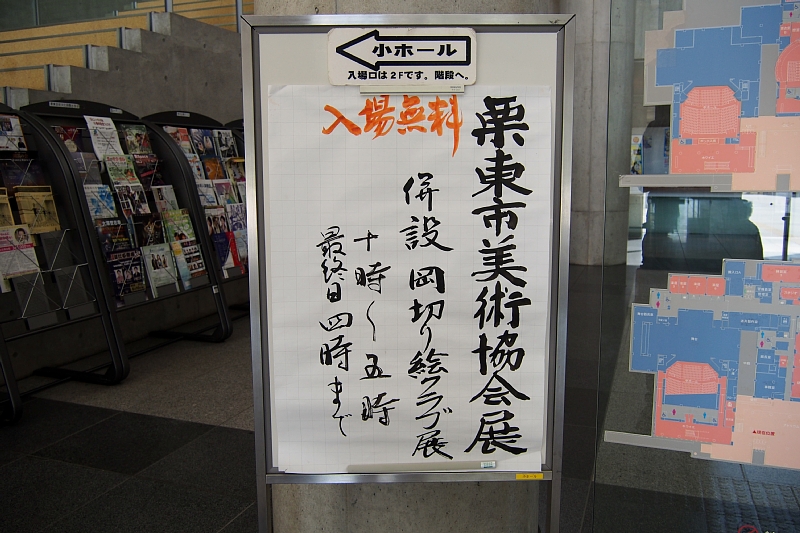 小ホール
入場口は2Fです。階段へ。
入場無料
栗東市美術協会展
併設 岡切り絵クラブ展
十時〜五時
最終日四時まで